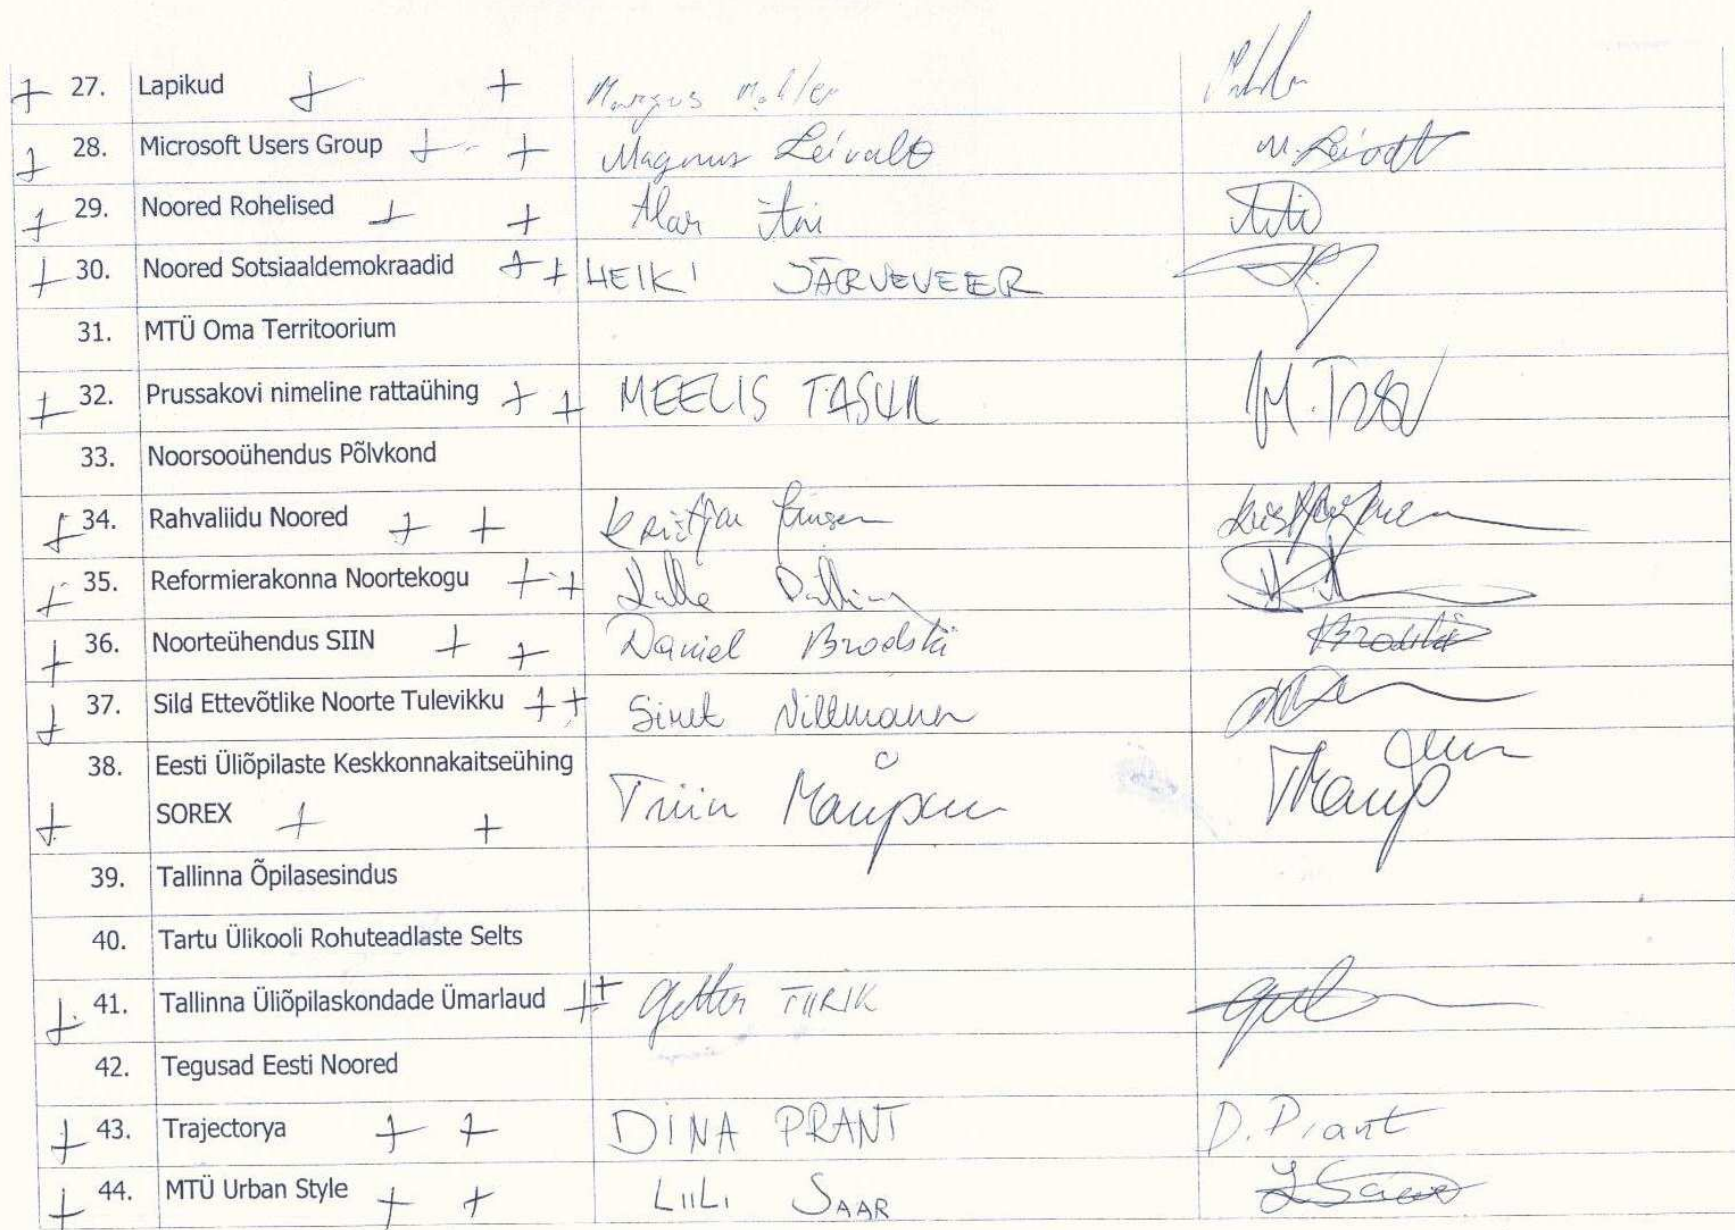 + 27. Lapikud + + Margus
+ 28. Microsoft Users Group + + Magnus Leivalt
+ 29. Noored Rohelised + + Alar
+ 30. Noored Sotsiaaldemokraadid + + HEIKI JÄRVEVEER
31. MTÜ Oma Territoorium
+ 32. Prussakovi nimeline rattaühing + + MEELIS TASUR
33. Noorsooühendus Põlvkond
+ 34. Rahvaliidu Noored + + Kristjan
+ 35. Reformierakonna Noortekogu + + Kalle
+ 36. Noorteühendus SIIN + + Daniel Brodski Brodski
+ 37. Sild Ettevõtlike Noorte Tulevikku + + Siret
38. Eesti Üliõpilaste Keskkonnakaitseühing
+ SOREX + + Triin
39. Tallinna Õpilasesindus
40. Tartu Ülikooli Rohuteadlaste Selts
+ 41. Tallinna Üliõpilaskondade Ümarlaud + + Getter TIIRIK
42. Tegusad Eesti Noored
+ 43. Trajectorya + + DINA PRANT D. Prant
+ 44. MTÜ Urban Style + + LIILI SAAR